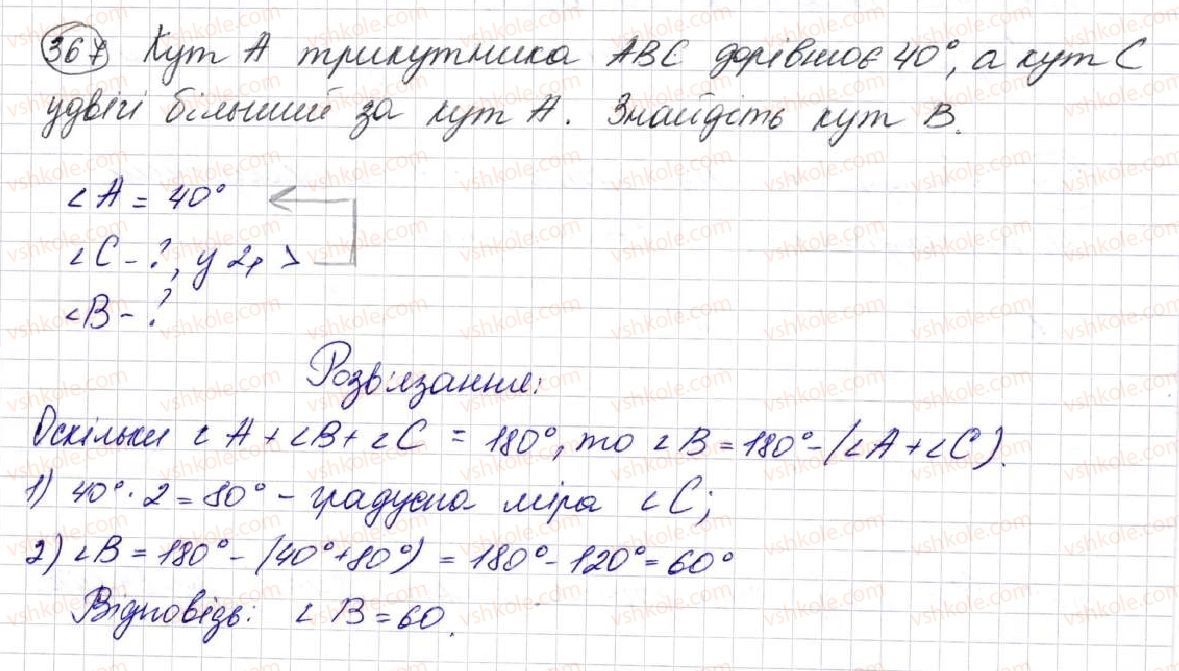 367 Кут А трикутника ABC дорівнює 40°, а кут С
удвічі більший за кут А. Знайдіть кут В.
∠A = 40°
∠C - ?, у 2р >
∠B - ?
Розв'язання:
Оскільки ∠A + ∠B + ∠C = 180°, то ∠B = 180° - (∠A + ∠C).
1) 40° · 2 = 80° - градусна міра ∠C;
2) ∠B = 180° - (40° + 80°) = 180° - 120° = 60°
Відповідь: ∠B = 60.